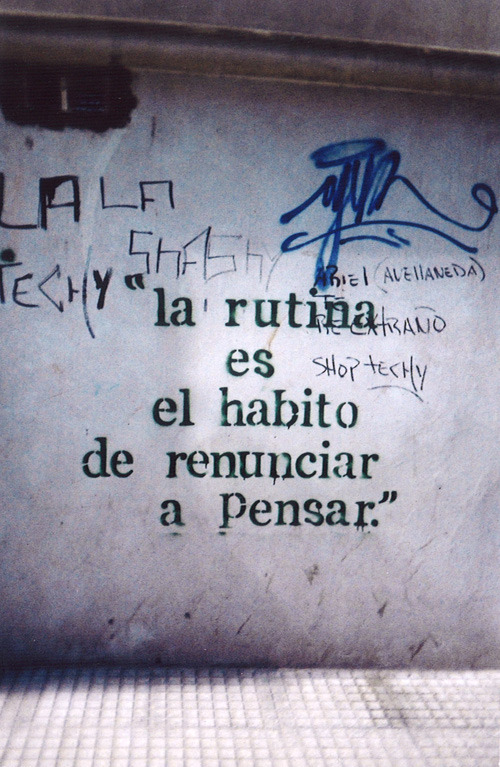 LALA
SHASHY
TECHY
ARIEL (AVELLANEDA)
TE
RE EXTRAÑO
SHOP TECHY
“la rutina
es
el habito
de renunciar
a pensar.”